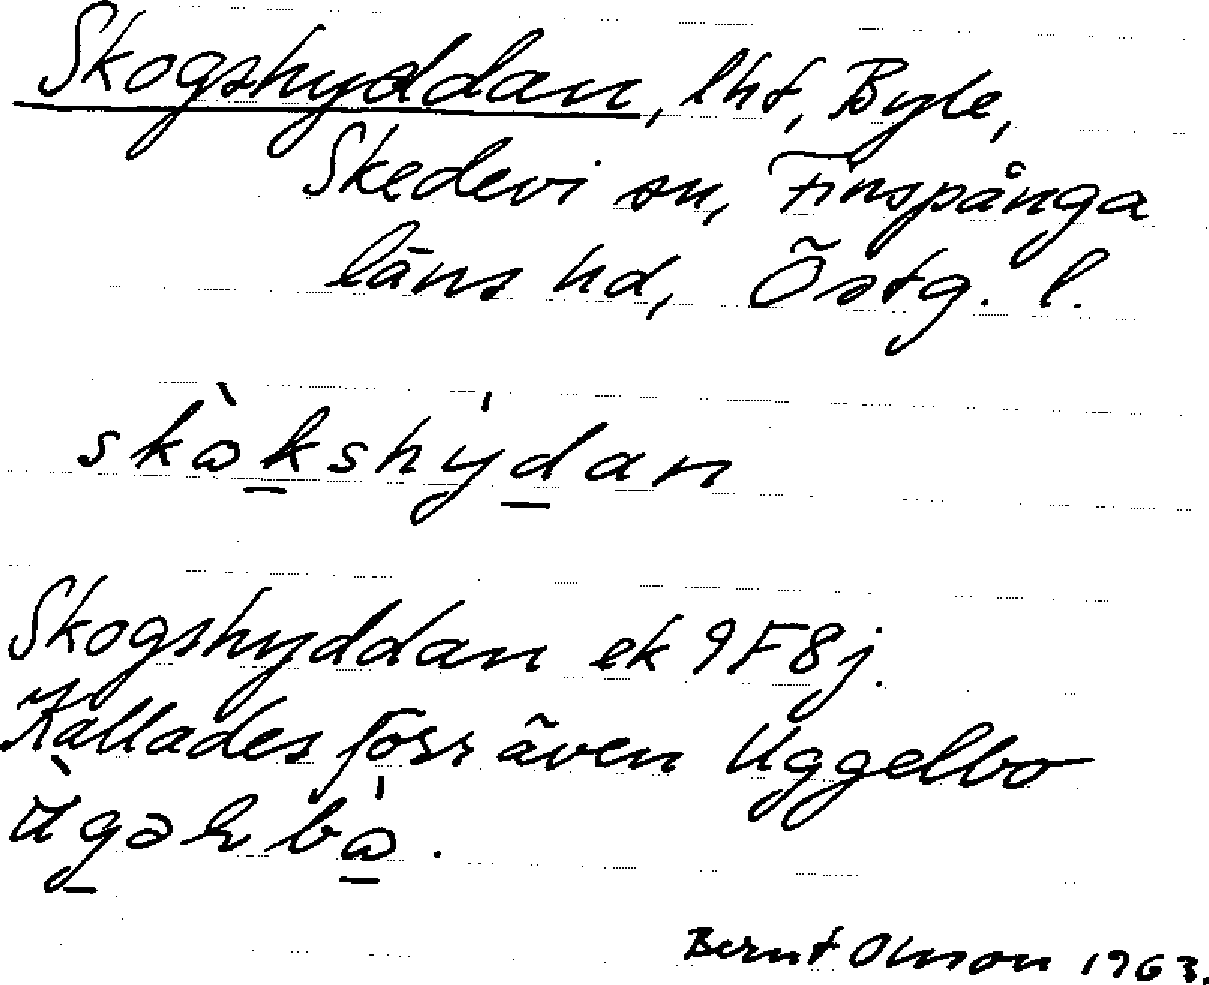 Skogshyddan, lht, Byle,
Skedevi sn, Finspånga
läns hd, Östg. l.
skòkshýdan
Skogshyddan ek 9F8j.
Kallades förr även Uggelbo
Bernt Olsson 1963.